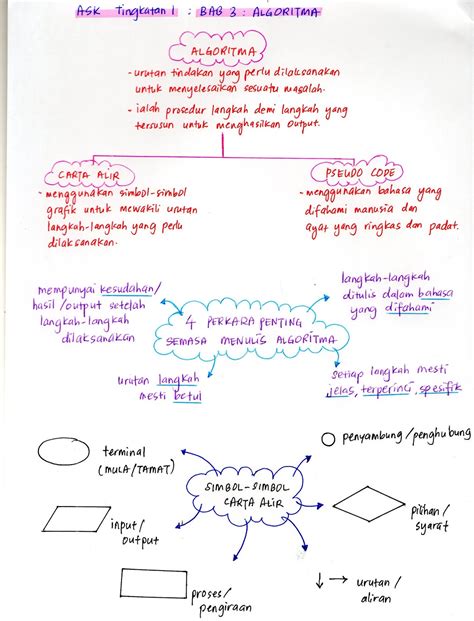 ASK Tingkatan 1 : BAB 3 : ALGORITMA
ALGORITMA
- urutan tindakan yang perlu dilaksanakan
untuk menyelesaikan sesuatu masalah.
- ialah prosedur langkah demi langkah yang
tersusun untuk menghasilkan output.
CARTA ALIR
- menggunakan simbol-simbol
grafik untuk mewakili urutan
langkah-langkah yang perlu
dilaksanakan.
PSEUDO CODE
- menggunakan bahasa yang
difahami manusia dan
ayat yang ringkas dan padat.
mempunyai kesudahan/
hasil/output setelah
langkah-langkah
dilaksanakan
langkah-langkah
ditulis dalam bahasa
yang difahami
4 PERKARA PENTING
SEMASA MENULIS ALGORITMA
urutan langkah
mesti betul
setiap langkah mesti
jelas, terperinci, spesifik
terminal
(MULA/TAMAT)
penyambung/penghubung
SIMBOL-SIMBOL
CARTA ALIR
input/
output
pilihan/
syarat
proses/
pengiraan
urutan/
aliran